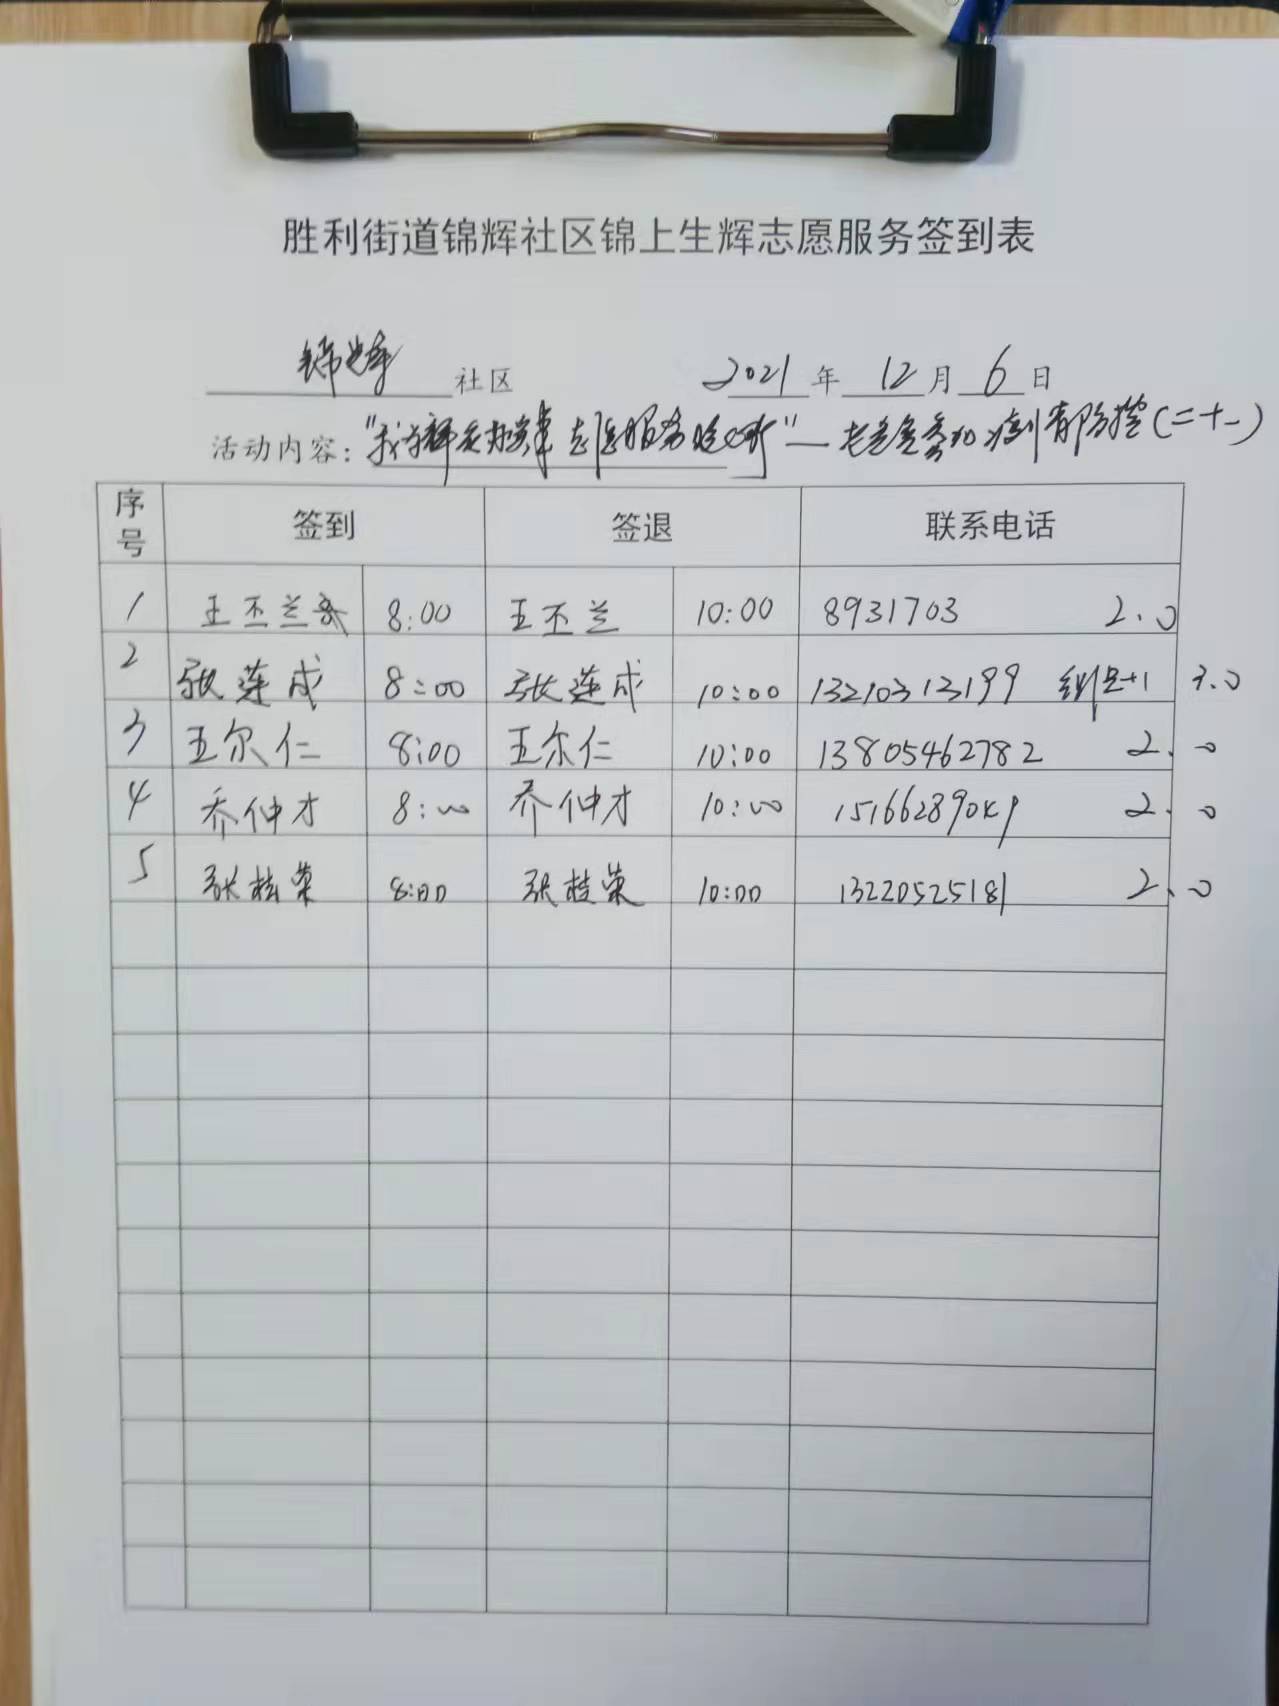 胜利街道锦辉社区锦上生辉志愿服务签到表
锦辉 社区 2021 年 12 月 6 日
活动内容："我为群众办实事 志愿服务"—老 参加 防控(二十一)
序号 签到 签退 联系电话
1 王丕兰 8:00 王丕兰 10:00 8931703 2.0
2 张莲成 8:00 张莲成 10:00 13210313199 组长+1 3.0
3 王尔仁 8:00 王尔仁 10:00 13805462782 2.0
4 乔仲才 8:00 乔仲才 10:00 2.0
5 张桂荣 8:00 张桂荣 10:00 13220525181 2.0